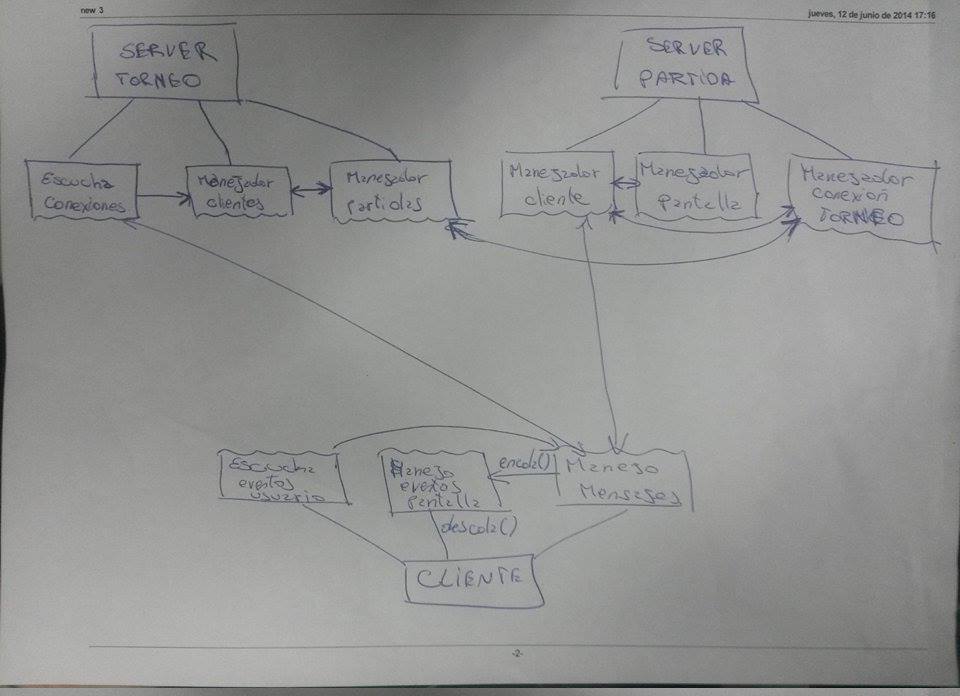 new 3
jueves, 12 de junio de 2014 17:16
SERVER
TORNEO
SERVER
PARTIDA
Escucha
conexiones
Manejador
clientes
Manejador
partidas
Manejador
cliente
Manejador
pantalla
Manejador
conexión
TORNEO
Escucha
eventos
usuario
Manejo
eventos
pantalla
encola()
Manejo
Mensajes
descola()
CLIENTE
-2-